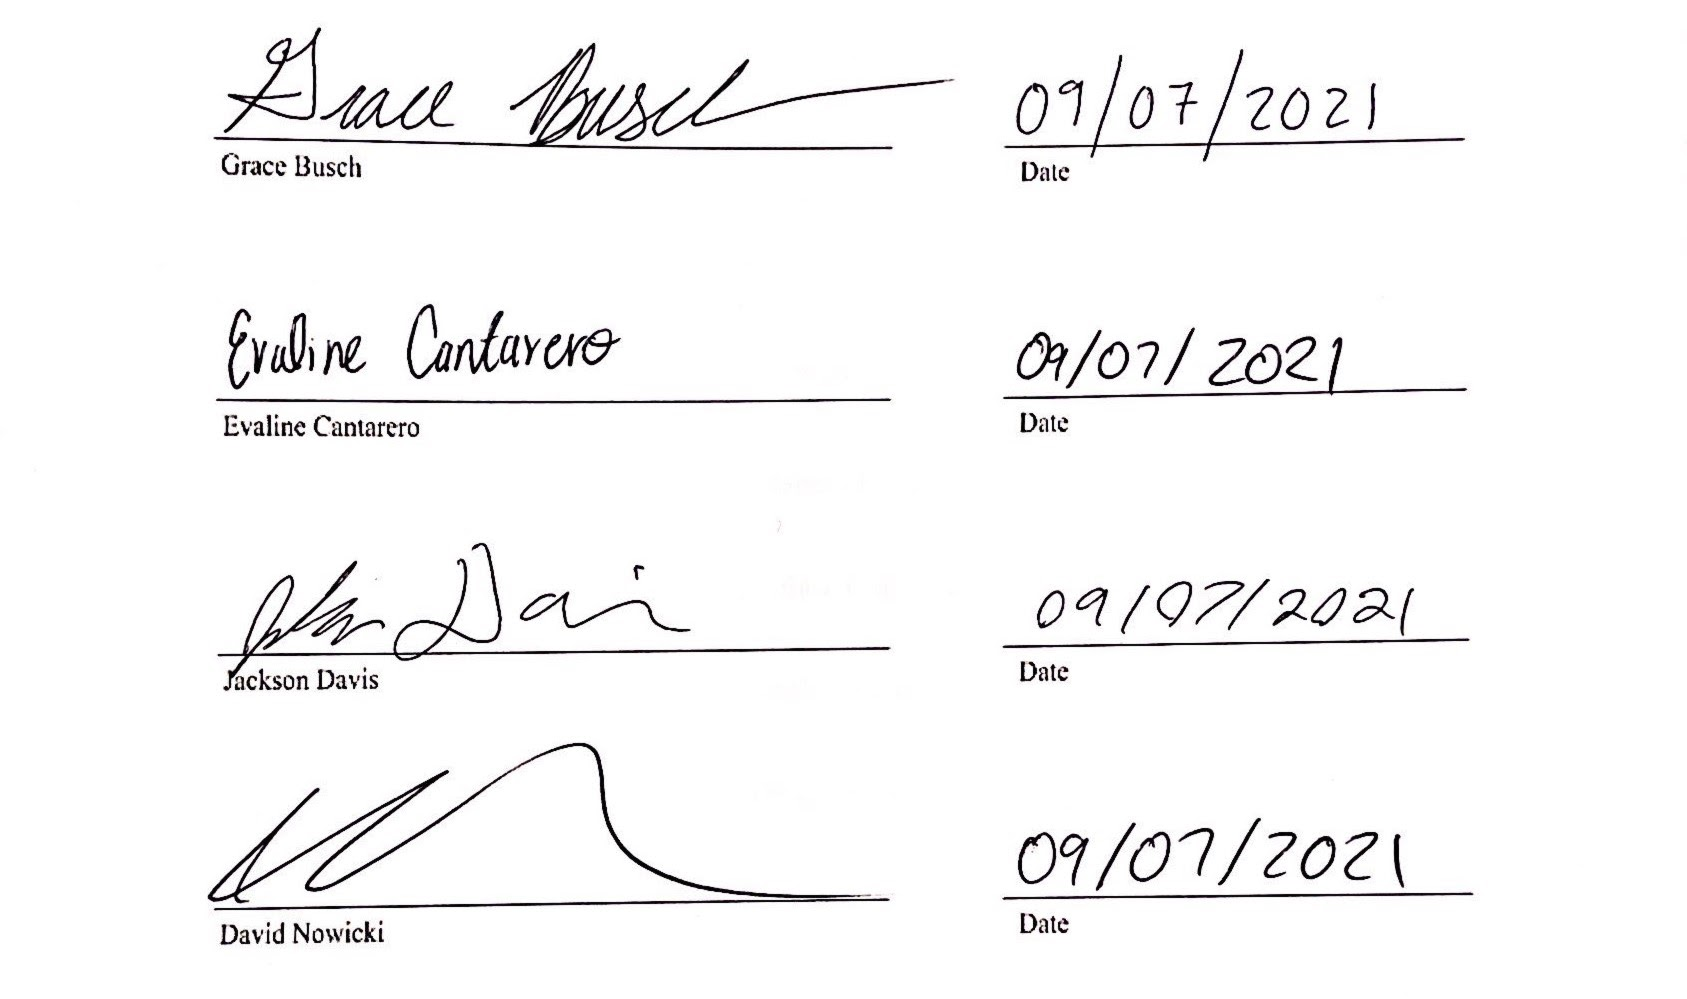 Grace Busch 09/07/2021
Grace Busch Date
Evaline Cantarero 09/07/2021
Evaline Cantarero Date
Davis 09/07/2021
Jackson Davis Date
09/07/2021
David Nowicki Date